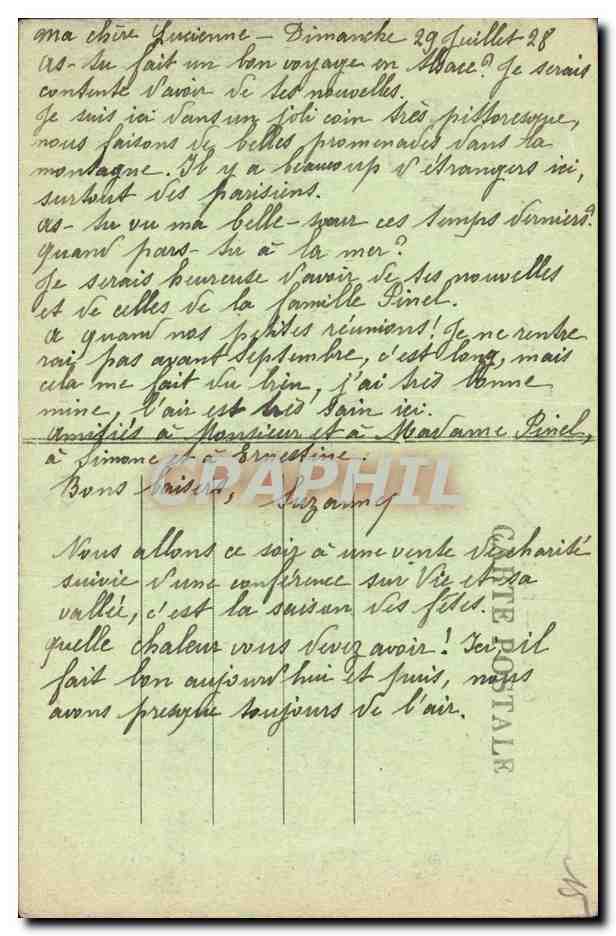 Ma chère Lucienne - Dimanche 29 Juillet 28
As-tu fait un bon voyage en Alsace? Je serais
contente d'avoir de tes nouvelles.
Je suis ici dans un joli coin très pittoresque,
nous faisons de belles promenades dans la
montagne. Il y a beaucoup d'étrangers ici,
surtout des parisiens.
As-tu vu ma belle-sœur ces temps derniers?
Quand pars-tu à la mer?
Je serais heureuse d'avoir de tes nouvelles
et de celles de la famille Pinel.
A quand nos petites réunions! Je ne rentre
rai pas avant Septembre, c'est long, mais
cela me fait du bien, j'ai très bonne
mine, l'air est très sain ici.
Amitiés à Monsieur et à Madame Pinel,
à Simone et à Ernestine.
Bons baisers, Suzanne
Nous allons ce soir à une vente de charité
suivie d'une conférence sur Vic et sa
vallée, c'est la saison des fêtes.
Quelle chaleur vous devez avoir! Ici, il
fait bon aujourd'hui et puis, nous
avons presque toujours de l'air.
CARTE POSTALE
CPAPHIL